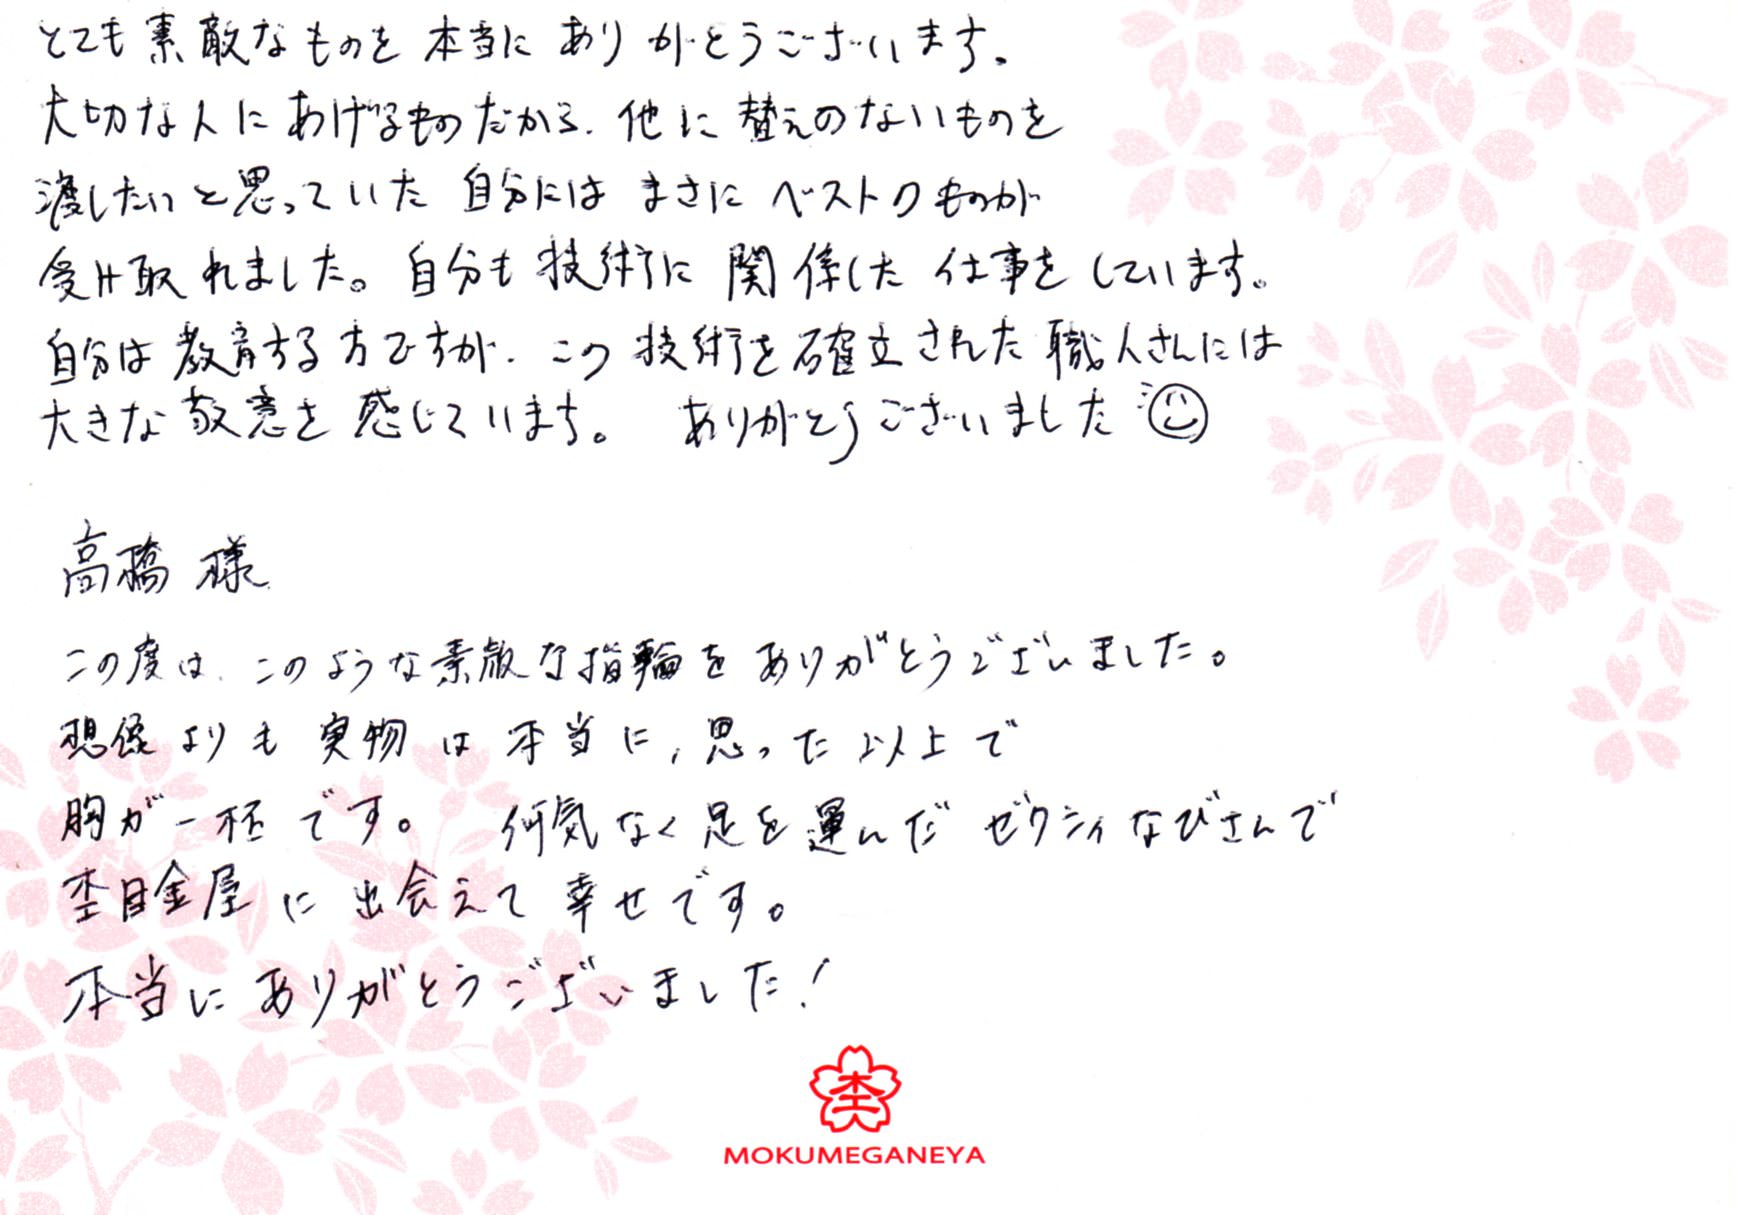 とても素敵なものを本当にありがとうございます。
大切な人にあげるものだから、他に替えのないものを
渡したいと思っていた自分にはまさにベストのものが
受け取れました。自分も技術に関係した仕事をしています。
自分は教育する方ですが、この技術を確立された職人さんには
大きな敬意を感じています。ありがとうございました
高橋様
この度は、このような素敵な指輪をありがとうございました。
想像よりも実物は本当に、思った以上で
胸が一杯です。何気なく足を運んだゼクシィなびさんで
杢目金屋に出会えて幸せです。
本当にありがとうございました!
杢
MOKUMEGANEYA